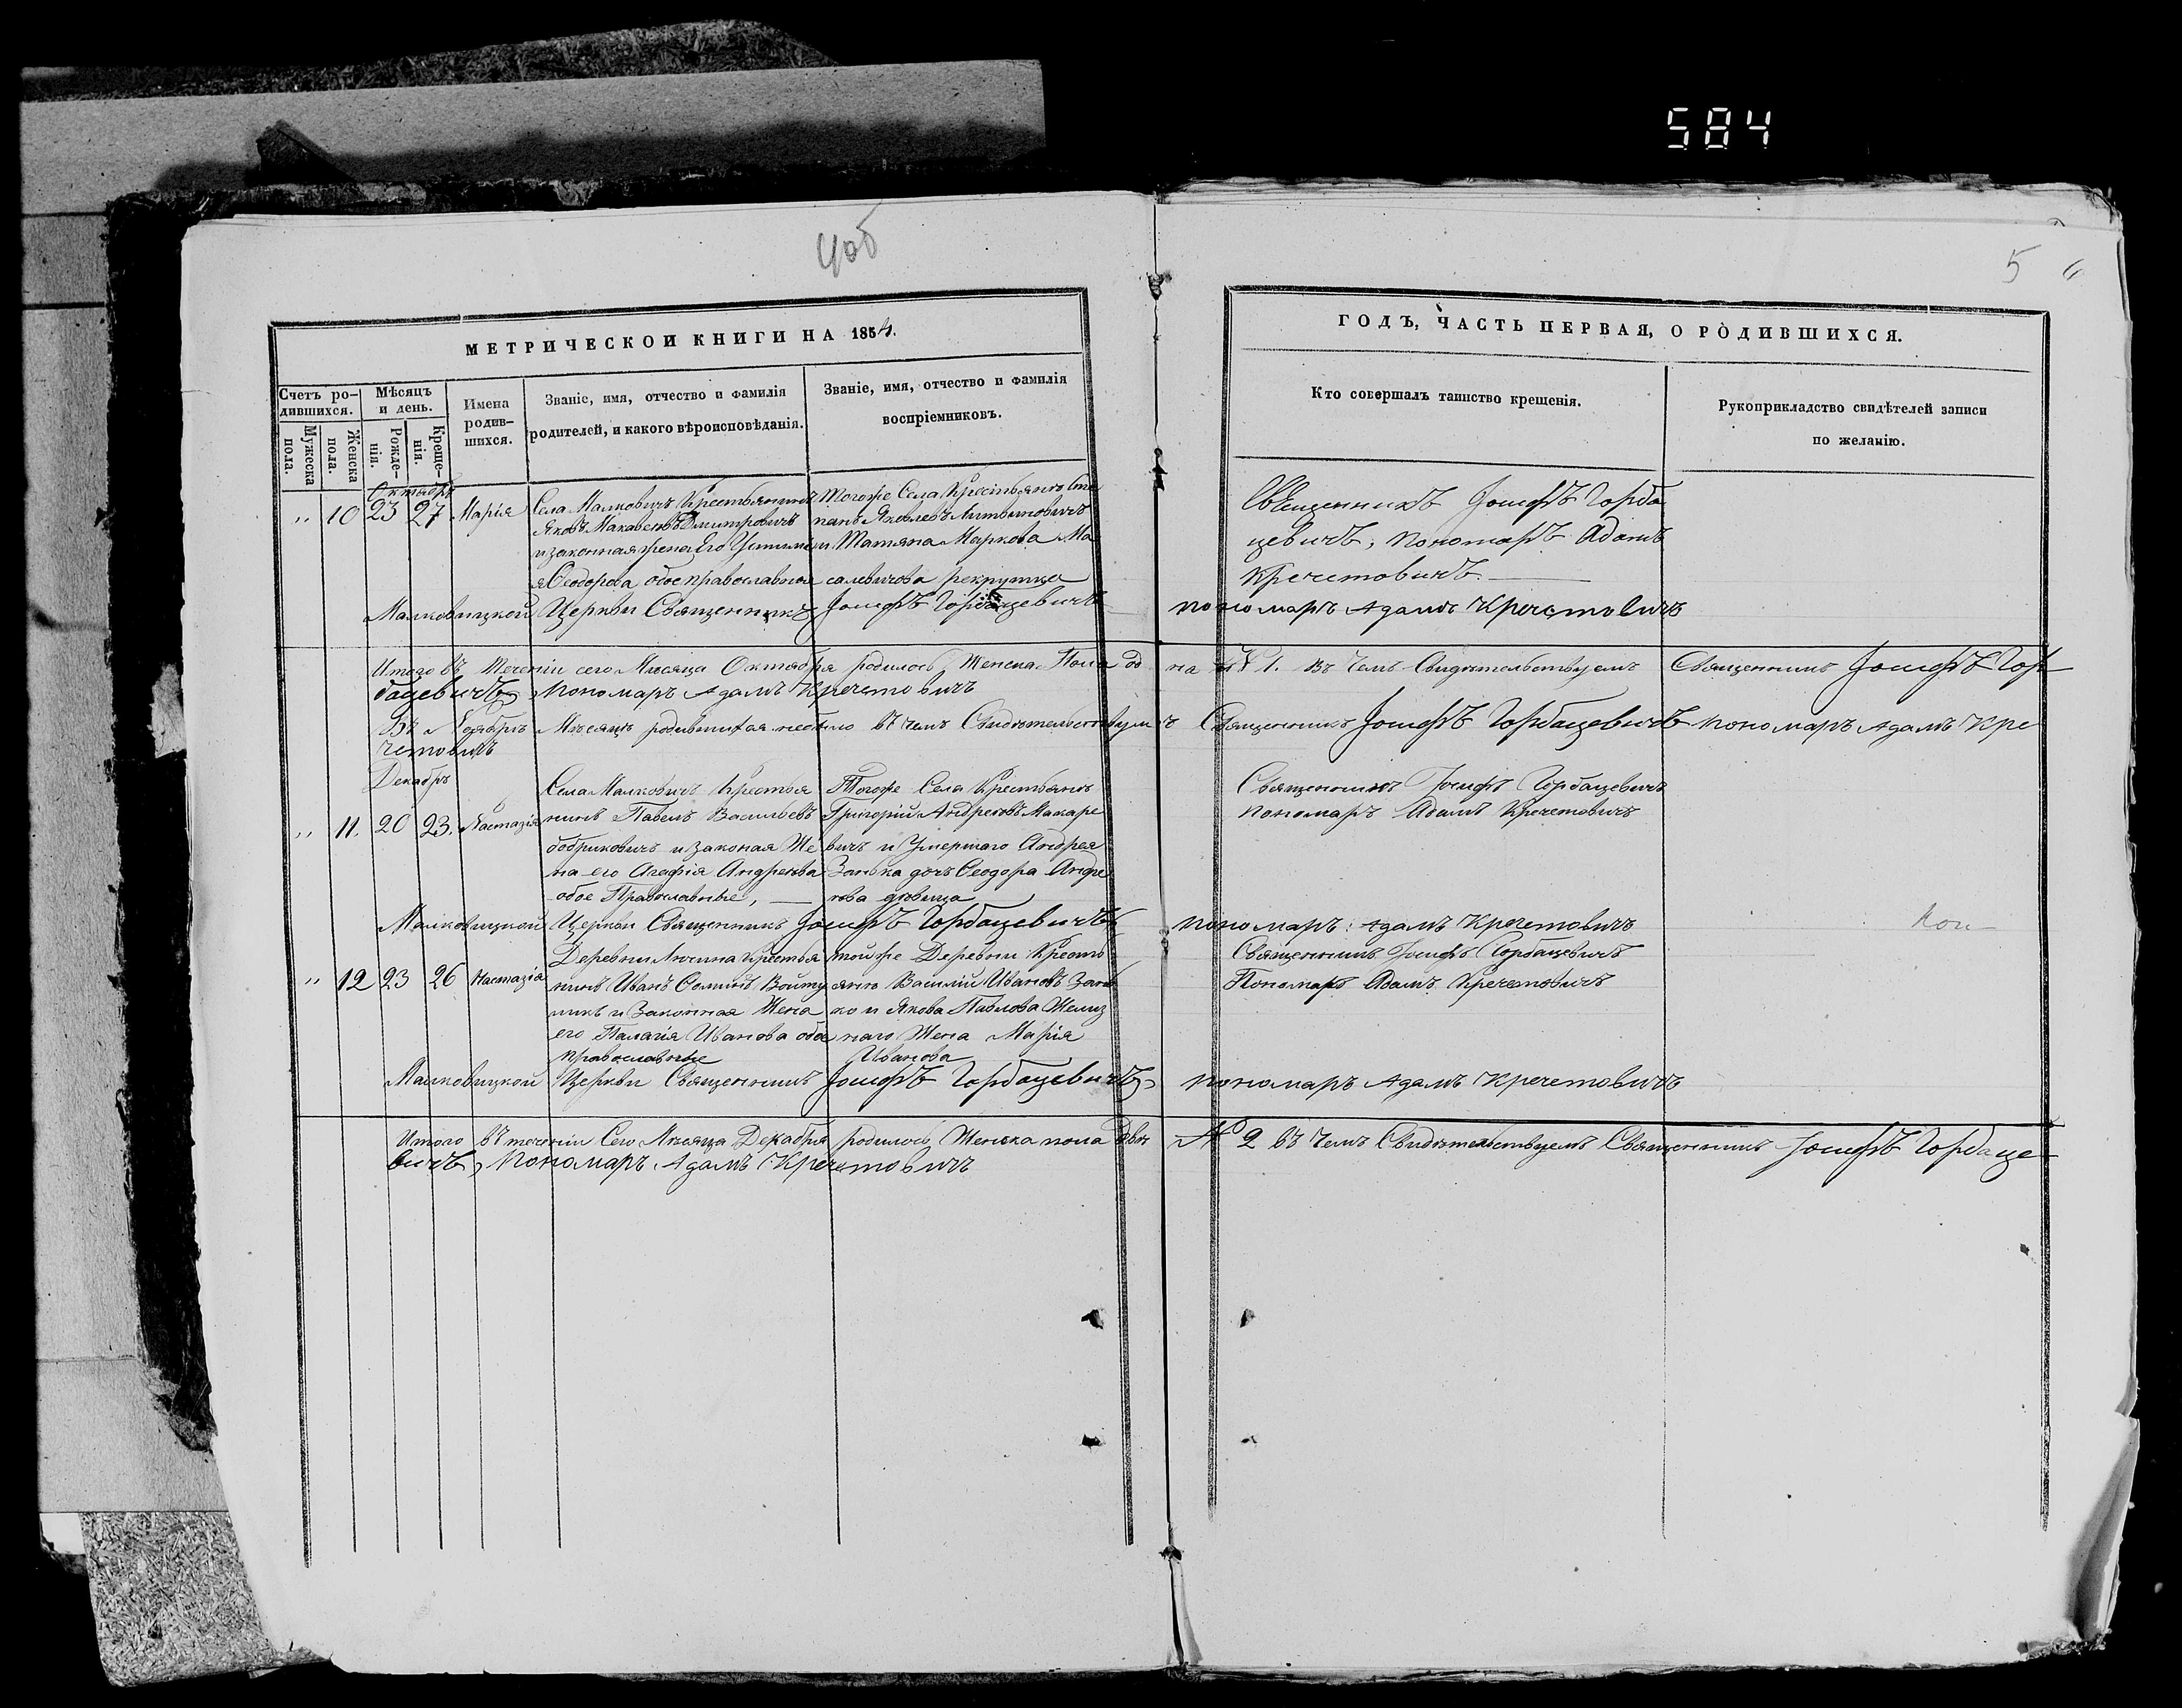 584
406
5
МЕТРИЧЕСКОЙ КНИГИ НА 1854.
ГОДЪ, ЧАСТЬ ПЕРВАЯ, О РОДИВШИХСЯ.
Счетъ родившихся.
Мужеска пола.
Женска пола.
Мѣсяцъ и день.
Рожденія.
Крещенія.
Имена родившихся.
Званіе, имя, отчество и фамилія родителей, и какого вѣроисповѣданія.
Званіе, имя, отчество и фамилія воспріемниковъ.
Кто совершалъ таинство крещенія.
Рукоприкладство свидѣтелей записи по желанію.
Октябрь
„ 10 23 27 Марія
Села Малковичъ Крестьянинъ
Яковъ Дмитровичъ
и законная жена Его
Ѳеодорова обое православные
Тогоже Села Крестьянъ Сте
панъ Яковлевъ Литвиновичъ
и Татяна Маркова Ма
салевичова рекрутка
Священникъ Іосифъ Горба
цевичъ, пономаръ Адамъ
Кречетовичъ.
Малковицкой Церкви Священникъ Іосифъ Горбацевичъ пономаръ Адамъ Кречетовичъ
Итого въ Теченіи сего Мѣсяца Октября родилось Женска Пола одна № 1. въ чемъ Свидѣтельствуемъ Священникъ Іосифъ Гор
бацевичъ, Пономаръ Адамъ Кречетовичъ
Въ Ноябрѣ Мѣсяцѣ родившихся небыло въ чемъ Свидѣтельствуемъ Священникъ Іосифъ Горбацевичъ пономаръ Адамъ Кре
четовичъ
Декабрь
„ 11. 20 23. Настазія
Села Малковичъ Крестья
нинъ Павелъ Васильевъ
бобриковичъ и законая Же
на его Агафія Андреева
обое Православные,
Тогоже Села Крестьянъ
Григорій Андреевъ Макаре
вичъ и Умершаго Андрея
Занька дочъ Ѳеодора Андре
ева дѣвица
Священникъ Іосифъ Горбацевичъ
пономаръ Адамъ Кречетовичъ
Малковицкой Церкви Священникъ Іосифъ Горбацевичъ пономаръ Адамъ Кречетовичъ
„ 12 23 26 Настазія
Деревни Крестья
нинъ Иванъ Войту
никъ и Законная Жена
его Палагія Ивановa обое
православные
тойже Деревни Кресть
янъ Василій Ивановъ Зань
ко и Якова Павлова
наго Жена Марія
Иванова
Священникъ Іосифъ Горбацевичъ
Пономаръ Адамъ Кречетовичъ
Малковицкой Церкви Священникъ Іосифъ Горбацевичъ пономаръ Адамъ Кречетовичъ
Итого въ теченіи Сего Мѣсяца Декабря родилось Женска пола Двѣ № 2 въ чемъ Свидѣтельствуемъ Священникъ Іосифъ Горбаце
вичъ, Пономаръ Адамъ Кречетовичъ